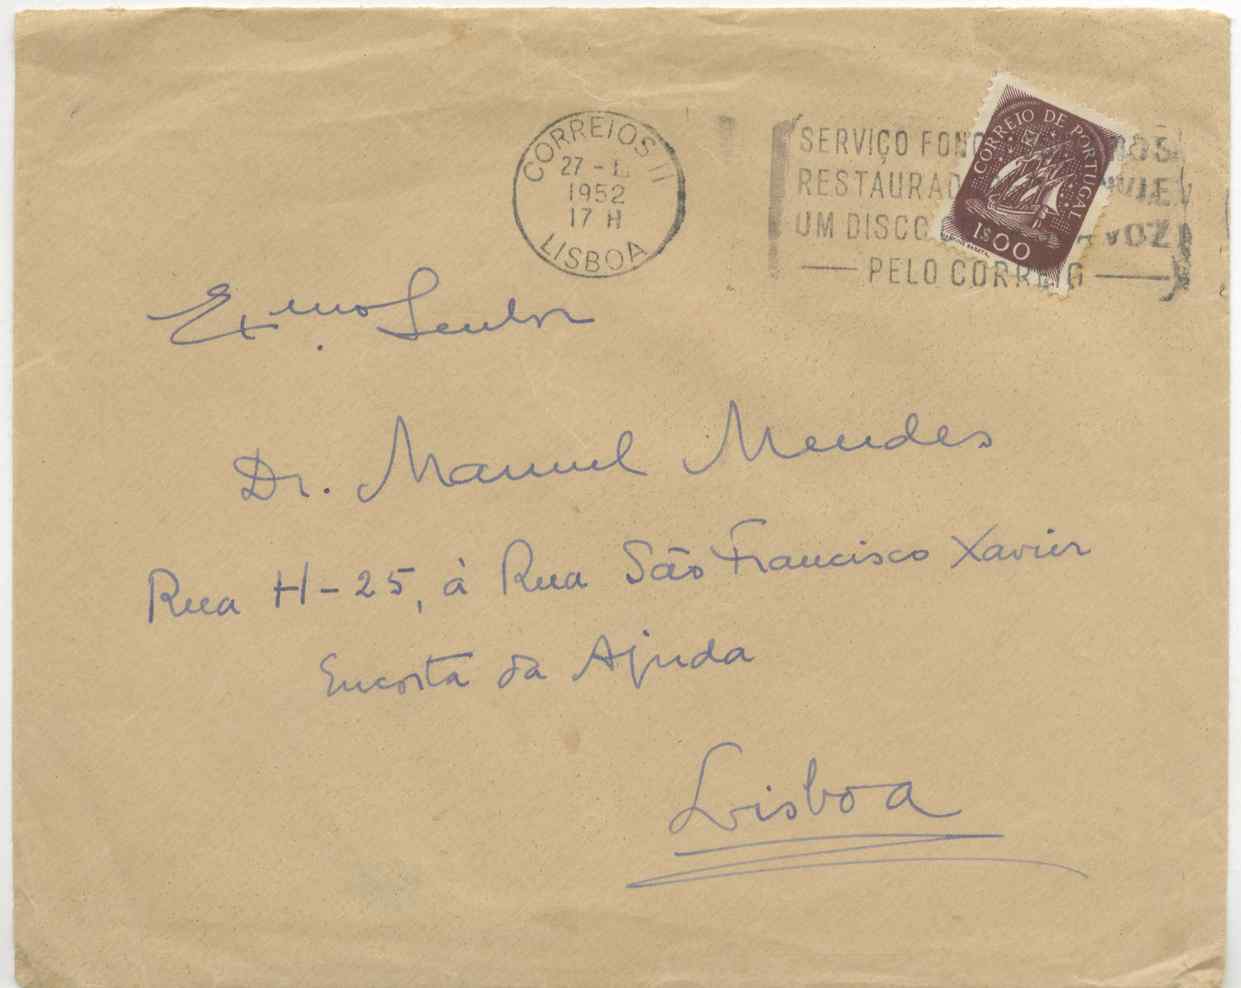 CORREIOS II
27 - I
1952
17 H
LISBOA
SERVIÇO
RESTAURAD
UM DISCO VOZ
PELO CORREIO
CORREIO DE PORTUGAL
1$00
Exmo. Senhor
Dr. Manuel Mendes
Rua H-25, à Rua São Francisco Xavier
Encosta da Ajuda
Lisboa